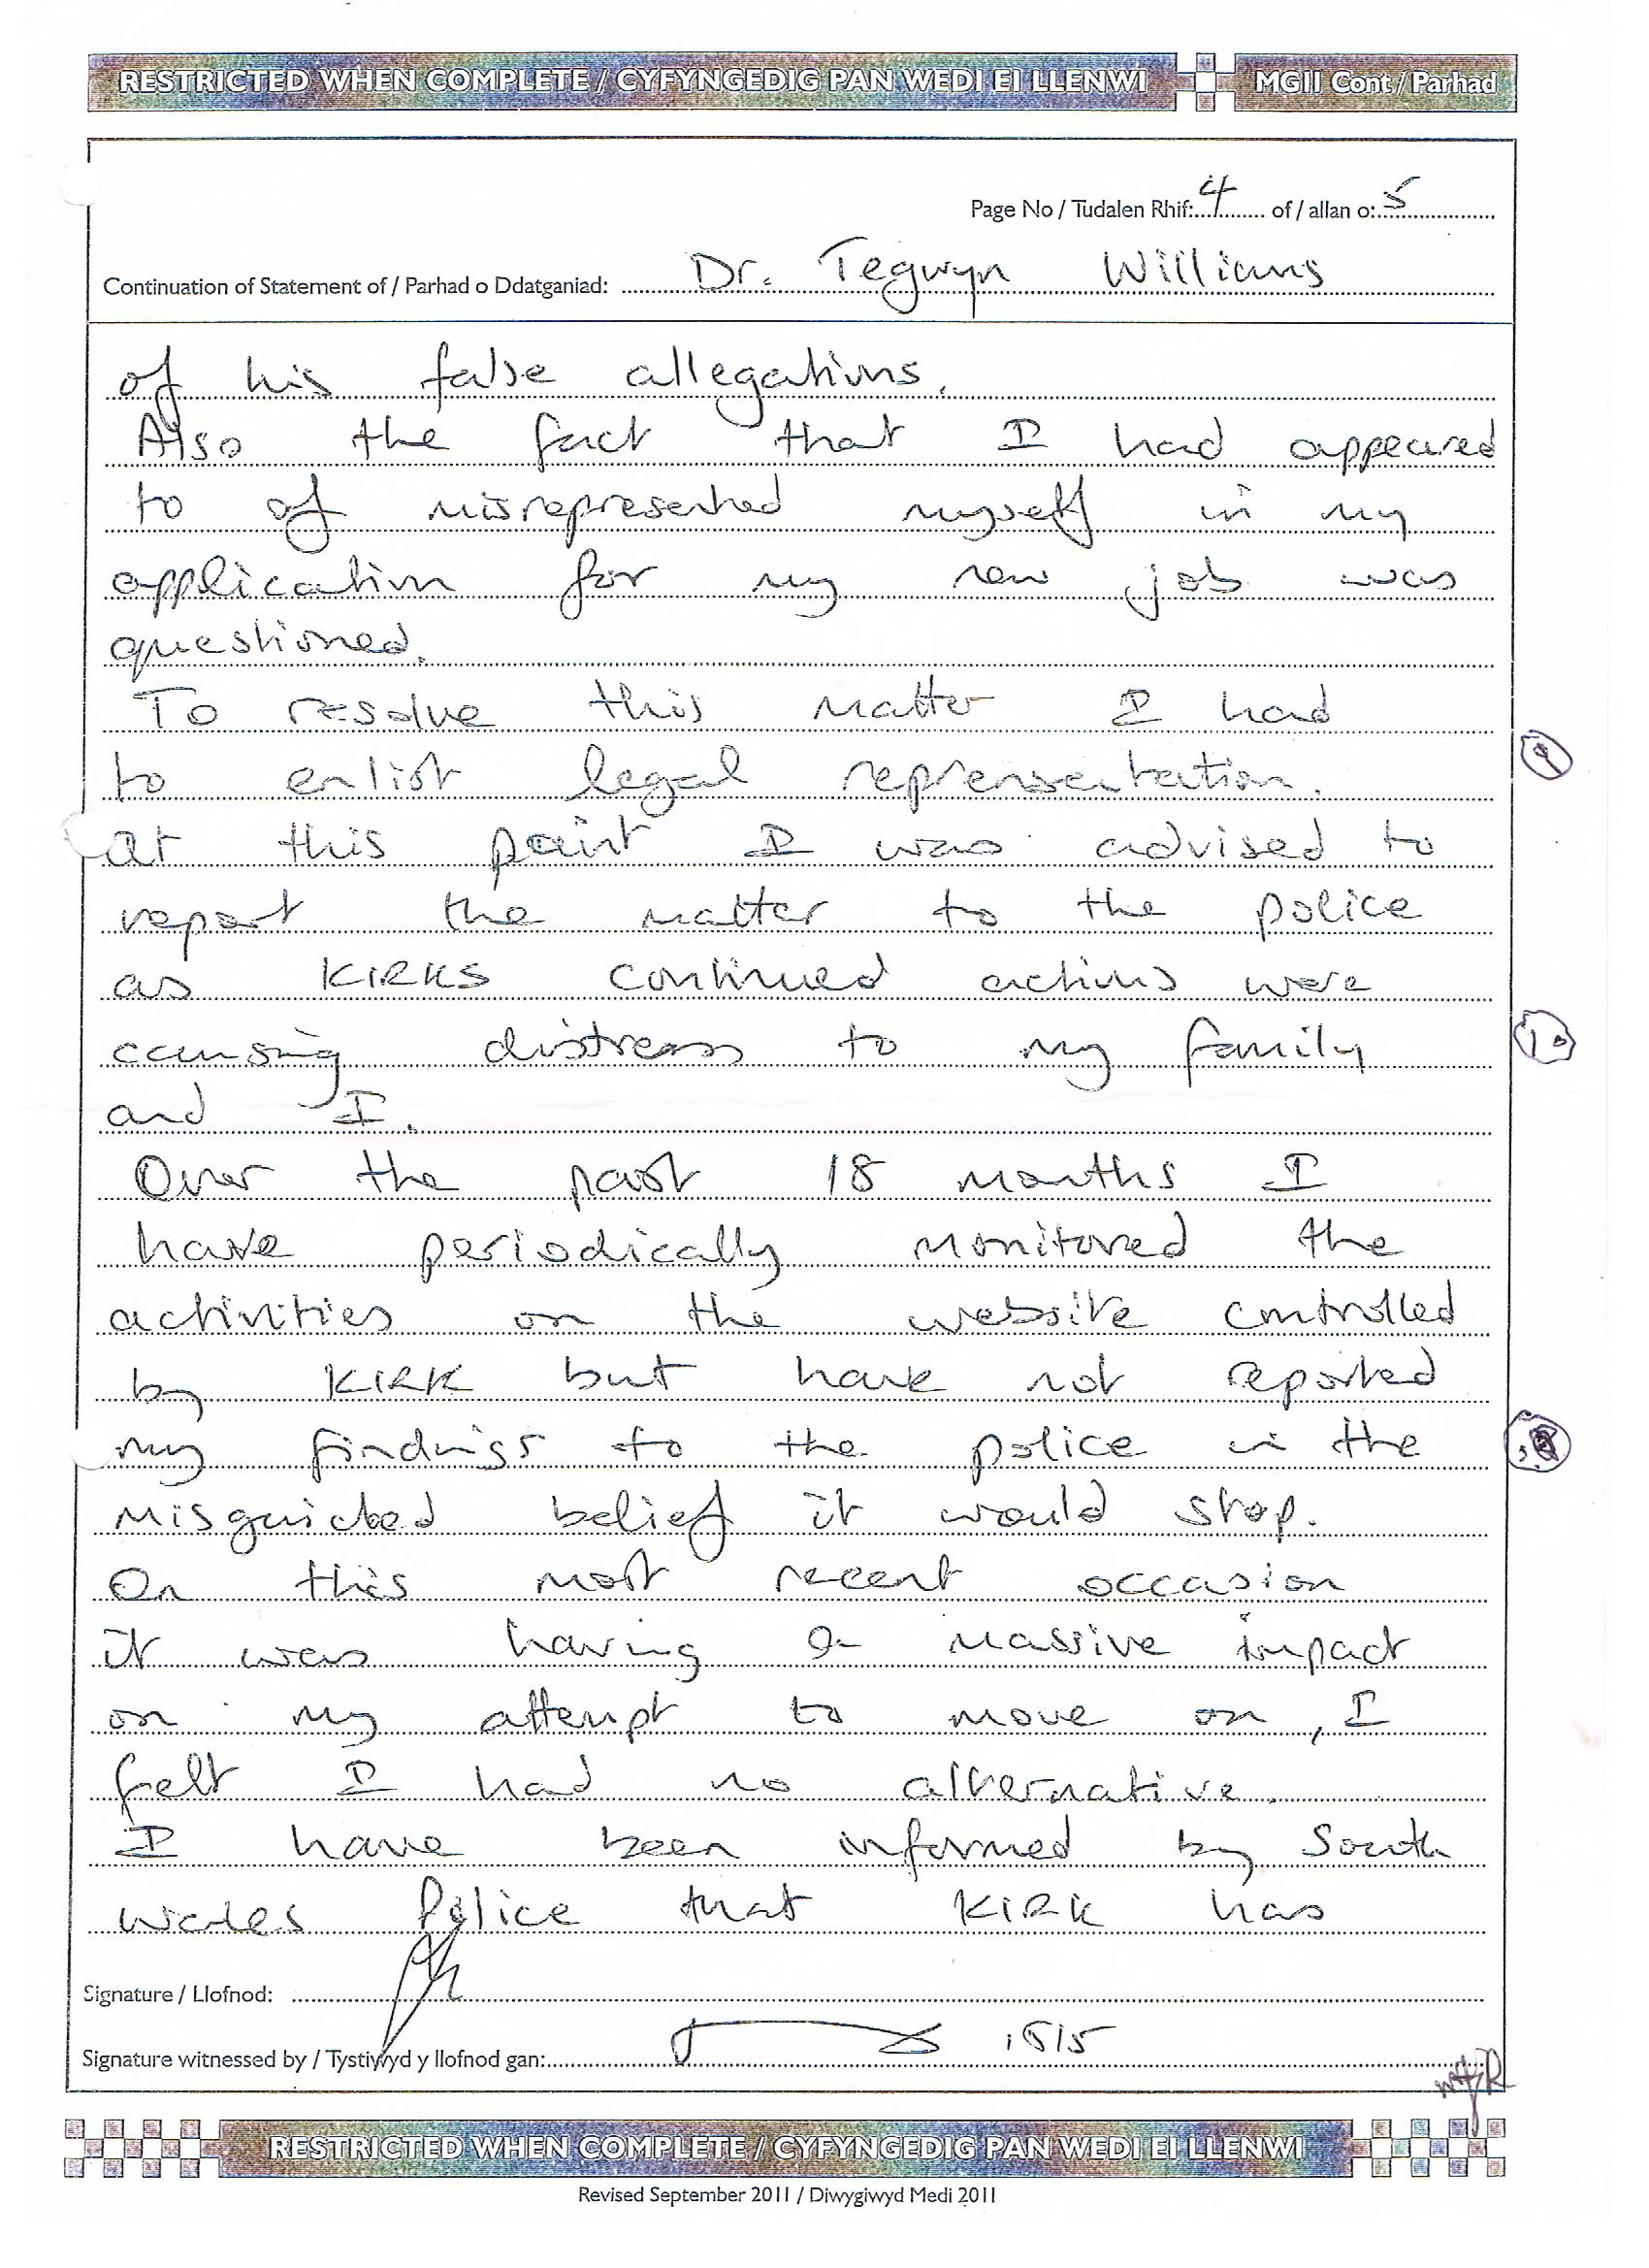 RESTRICTED WHEN COMPLETE / CYFYNGEDIG PAN WEDI EI LLENWI
MG11 Cont / Parhad
Page No / Tudalen Rhif: 4 of / allan o: 5
Continuation of Statement of / Parhad o Ddatganiad: Dr. Tegwyn Williams
of his false allegations.
Also the fact that I had appeared
to of misrepresented myself in my
application for my new job was
questioned.
To resolve this matter I had
to enlist legal reprensentation.
9
at this point I was advised to
report the matter to the police
as KIRKS continued actions were
causing distress to my family
10
and I.
Over the past 18 months I
have periodically monitored the
activities on the website controlled
by KIRK but have not reported
my findings to the police in the
misguided belief it would stop.
On this most recent occasion
it was having a massive impact
on my attempt to move on, I
felt I had no alternative.
I have been informed by South
Wales Police that KIRK has
Signature / Llofnod:
Signature witnessed by / Tystiwyd y llofnod gan: 1515
RESTRICTED WHEN COMPLETE / CYFYNGEDIG PAN WEDI EI LLENWI
Revised September 2011 / Diwygiwyd Medi 2011